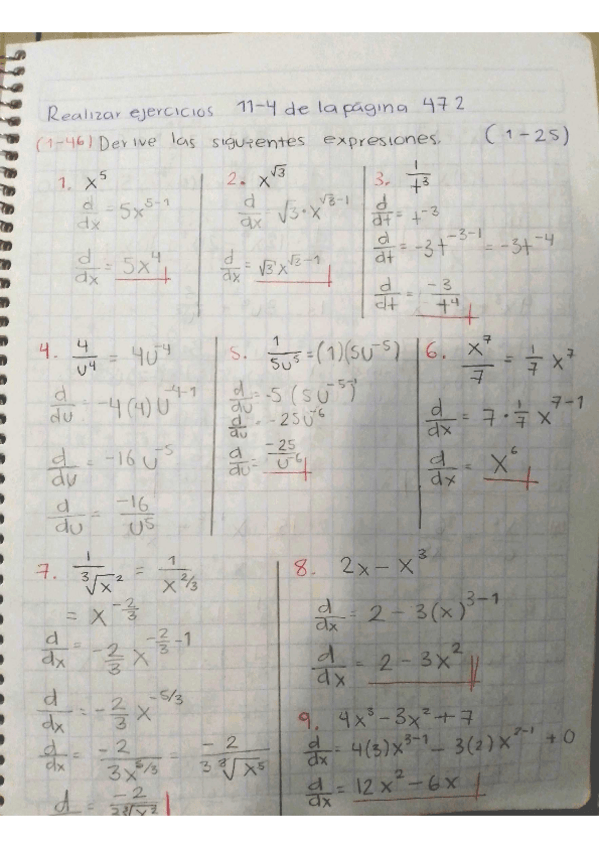 Realizar ejercicios 11-4 de la página 472
(1-46) Derive las siguientes expresiones. (1-25)
1. x^5
d/dx = 5x^{5-1}
d/dx = 5x^4
2. x^{√3}
d/dx = √3 · x^{√3-1}
d/dx = √3 x^{√3-1}
3. 1/t^3
d/dt = t^{-3}
d/dt = -3t^{-3-1} = -3t^{-4}
d/dt = -3/t^4
4. 4/u^4 = 4u^{-4}
d/du = -4(4)u^{-4-1}
d/du = -16u^{-5}
d/du = -16/u^5
5. 1/5u^5 = (1)(5u^{-5})
d/du = -5(5u^{-5-1})
d/du = -25u^{-6}
d/du = -25/u^{-6}
6. x^7/7 = 1/7 x^7
d/dx = 7 · 1/7 x^{7-1}
d/dx = x^6
7. 1/∛x^2 = 1/x^{2/3}
= x^{-2/3}
d/dx = -2/3 x^{-2/3-1}
d/dx = -2/3 x^{-5/3}
d/dx = -2/3x^{5/3} = -2/3∛x^5
d = -2
8. 2x - x^3
d/dx = 2 - 3(x)^{3-1}
d/dx = 2 - 3x^2
9. 4x^3 - 3x^2 + 7
d/dx = 4(3)x^{3-1} - 3(2)x^{2-1} + 0
d/dx = 12x^2 - 6x